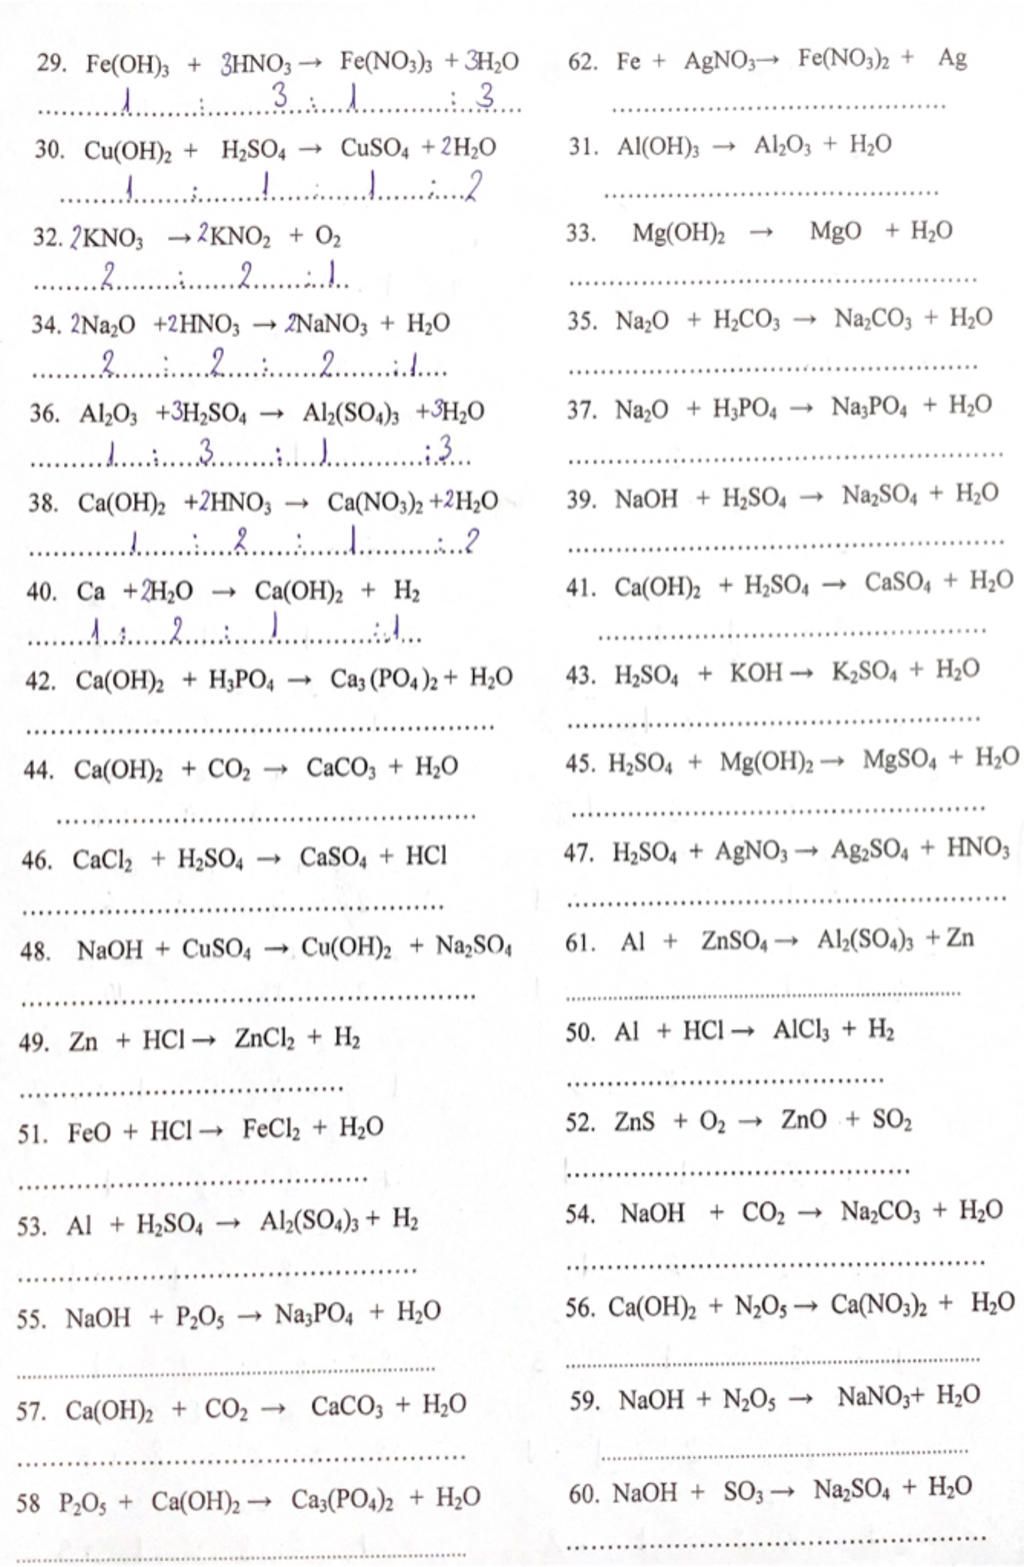 29. Fe(OH)₃ + 3HNO₃ → Fe(NO₃)₃ + 3H₂O
1 : 3 : 1 : 3
62. Fe + AgNO₃→ Fe(NO₃)₂ + Ag
30. Cu(OH)₂ + H₂SO₄ → CuSO₄ + 2H₂O
1 : 1 : 1 : 2
31. Al(OH)₃ → Al₂O₃ + H₂O
32. 2KNO₃ → 2KNO₂ + O₂
2 : 2 : 1
33. Mg(OH)₂ → MgO + H₂O
34. 2Na₂O +2HNO₃ → 2NaNO₃ + H₂O
2 : 2 : 2 : 1
35. Na₂O + H₂CO₃ → Na₂CO₃ + H₂O
36. Al₂O₃ +3H₂SO₄ → Al₂(SO₄)₃ +3H₂O
1 : 3 : 1 : 3
37. Na₂O + H₃PO₄ → Na₃PO₄ + H₂O
38. Ca(OH)₂ +2HNO₃ → Ca(NO₃)₂ +2H₂O
1 : 2 : 1 : 2
39. NaOH + H₂SO₄ → Na₂SO₄ + H₂O
40. Ca +2H₂O → Ca(OH)₂ + H₂
1 : 2 : 1 : 1
41. Ca(OH)₂ + H₂SO₄ → CaSO₄ + H₂O
42. Ca(OH)₂ + H₃PO₄ → Ca₃(PO₄)₂ + H₂O
43. H₂SO₄ + KOH → K₂SO₄ + H₂O
44. Ca(OH)₂ + CO₂ → CaCO₃ + H₂O
45. H₂SO₄ + Mg(OH)₂ → MgSO₄ + H₂O
46. CaCl₂ + H₂SO₄ → CaSO₄ + HCl
47. H₂SO₄ + AgNO₃ → Ag₂SO₄ + HNO₃
48. NaOH + CuSO₄ → Cu(OH)₂ + Na₂SO₄
61. Al + ZnSO₄ → Al₂(SO₄)₃ + Zn
49. Zn + HCl → ZnCl₂ + H₂
50. Al + HCl → AlCl₃ + H₂
51. FeO + HCl → FeCl₂ + H₂O
52. ZnS + O₂ → ZnO + SO₂
53. Al + H₂SO₄ → Al₂(SO₄)₃ + H₂
54. NaOH + CO₂ → Na₂CO₃ + H₂O
55. NaOH + P₂O₅ → Na₃PO₄ + H₂O
56. Ca(OH)₂ + N₂O₅ → Ca(NO₃)₂ + H₂O
57. Ca(OH)₂ + CO₂ → CaCO₃ + H₂O
59. NaOH + N₂O₅ → NaNO₃+ H₂O
58 P₂O₅ + Ca(OH)₂ → Ca₃(PO₄)₂ + H₂O
60. NaOH + SO₃ → Na₂SO₄ + H₂O